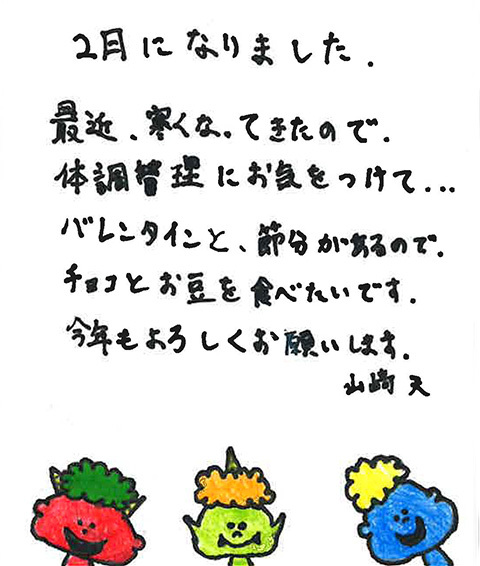 2月になりました.
最近、寒くなってきたので、
体調管理にお気をつけて...
バレンタインと、節分があるので、
チョコとお豆を食べたいです.
今年もよろしくお願いします.
山﨑 天